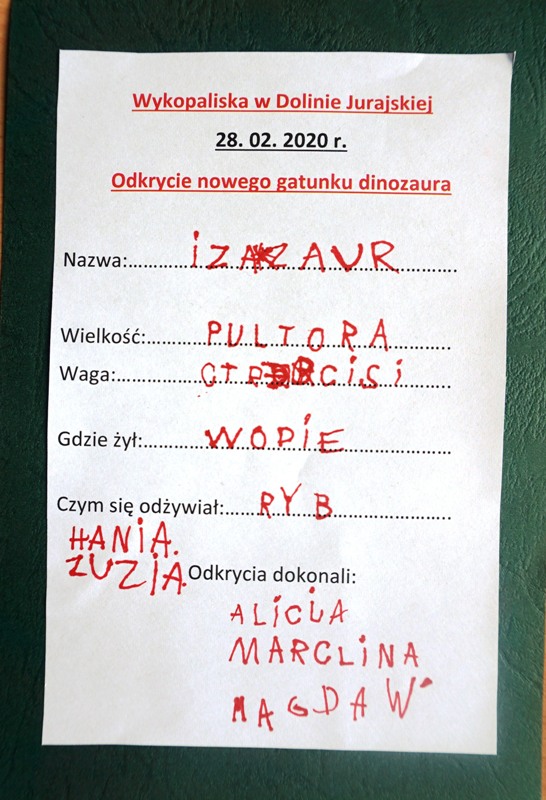 Wykopaliska w Dolinie Jurajskiej
28. 02. 2020 r.
Odkrycie nowego gatunku dinozaura
Nazwa:..........iZAZAUR..........
Wielkość:..........PULTORA..........
Waga:....................
Gdzie żył:..........WODIE..........
Czym się odżywiał:......RYB..........
HANiA.
ZUZiA.
Odkrycia dokonali:
ALiCiA
MARCLiNA
MAGDA W